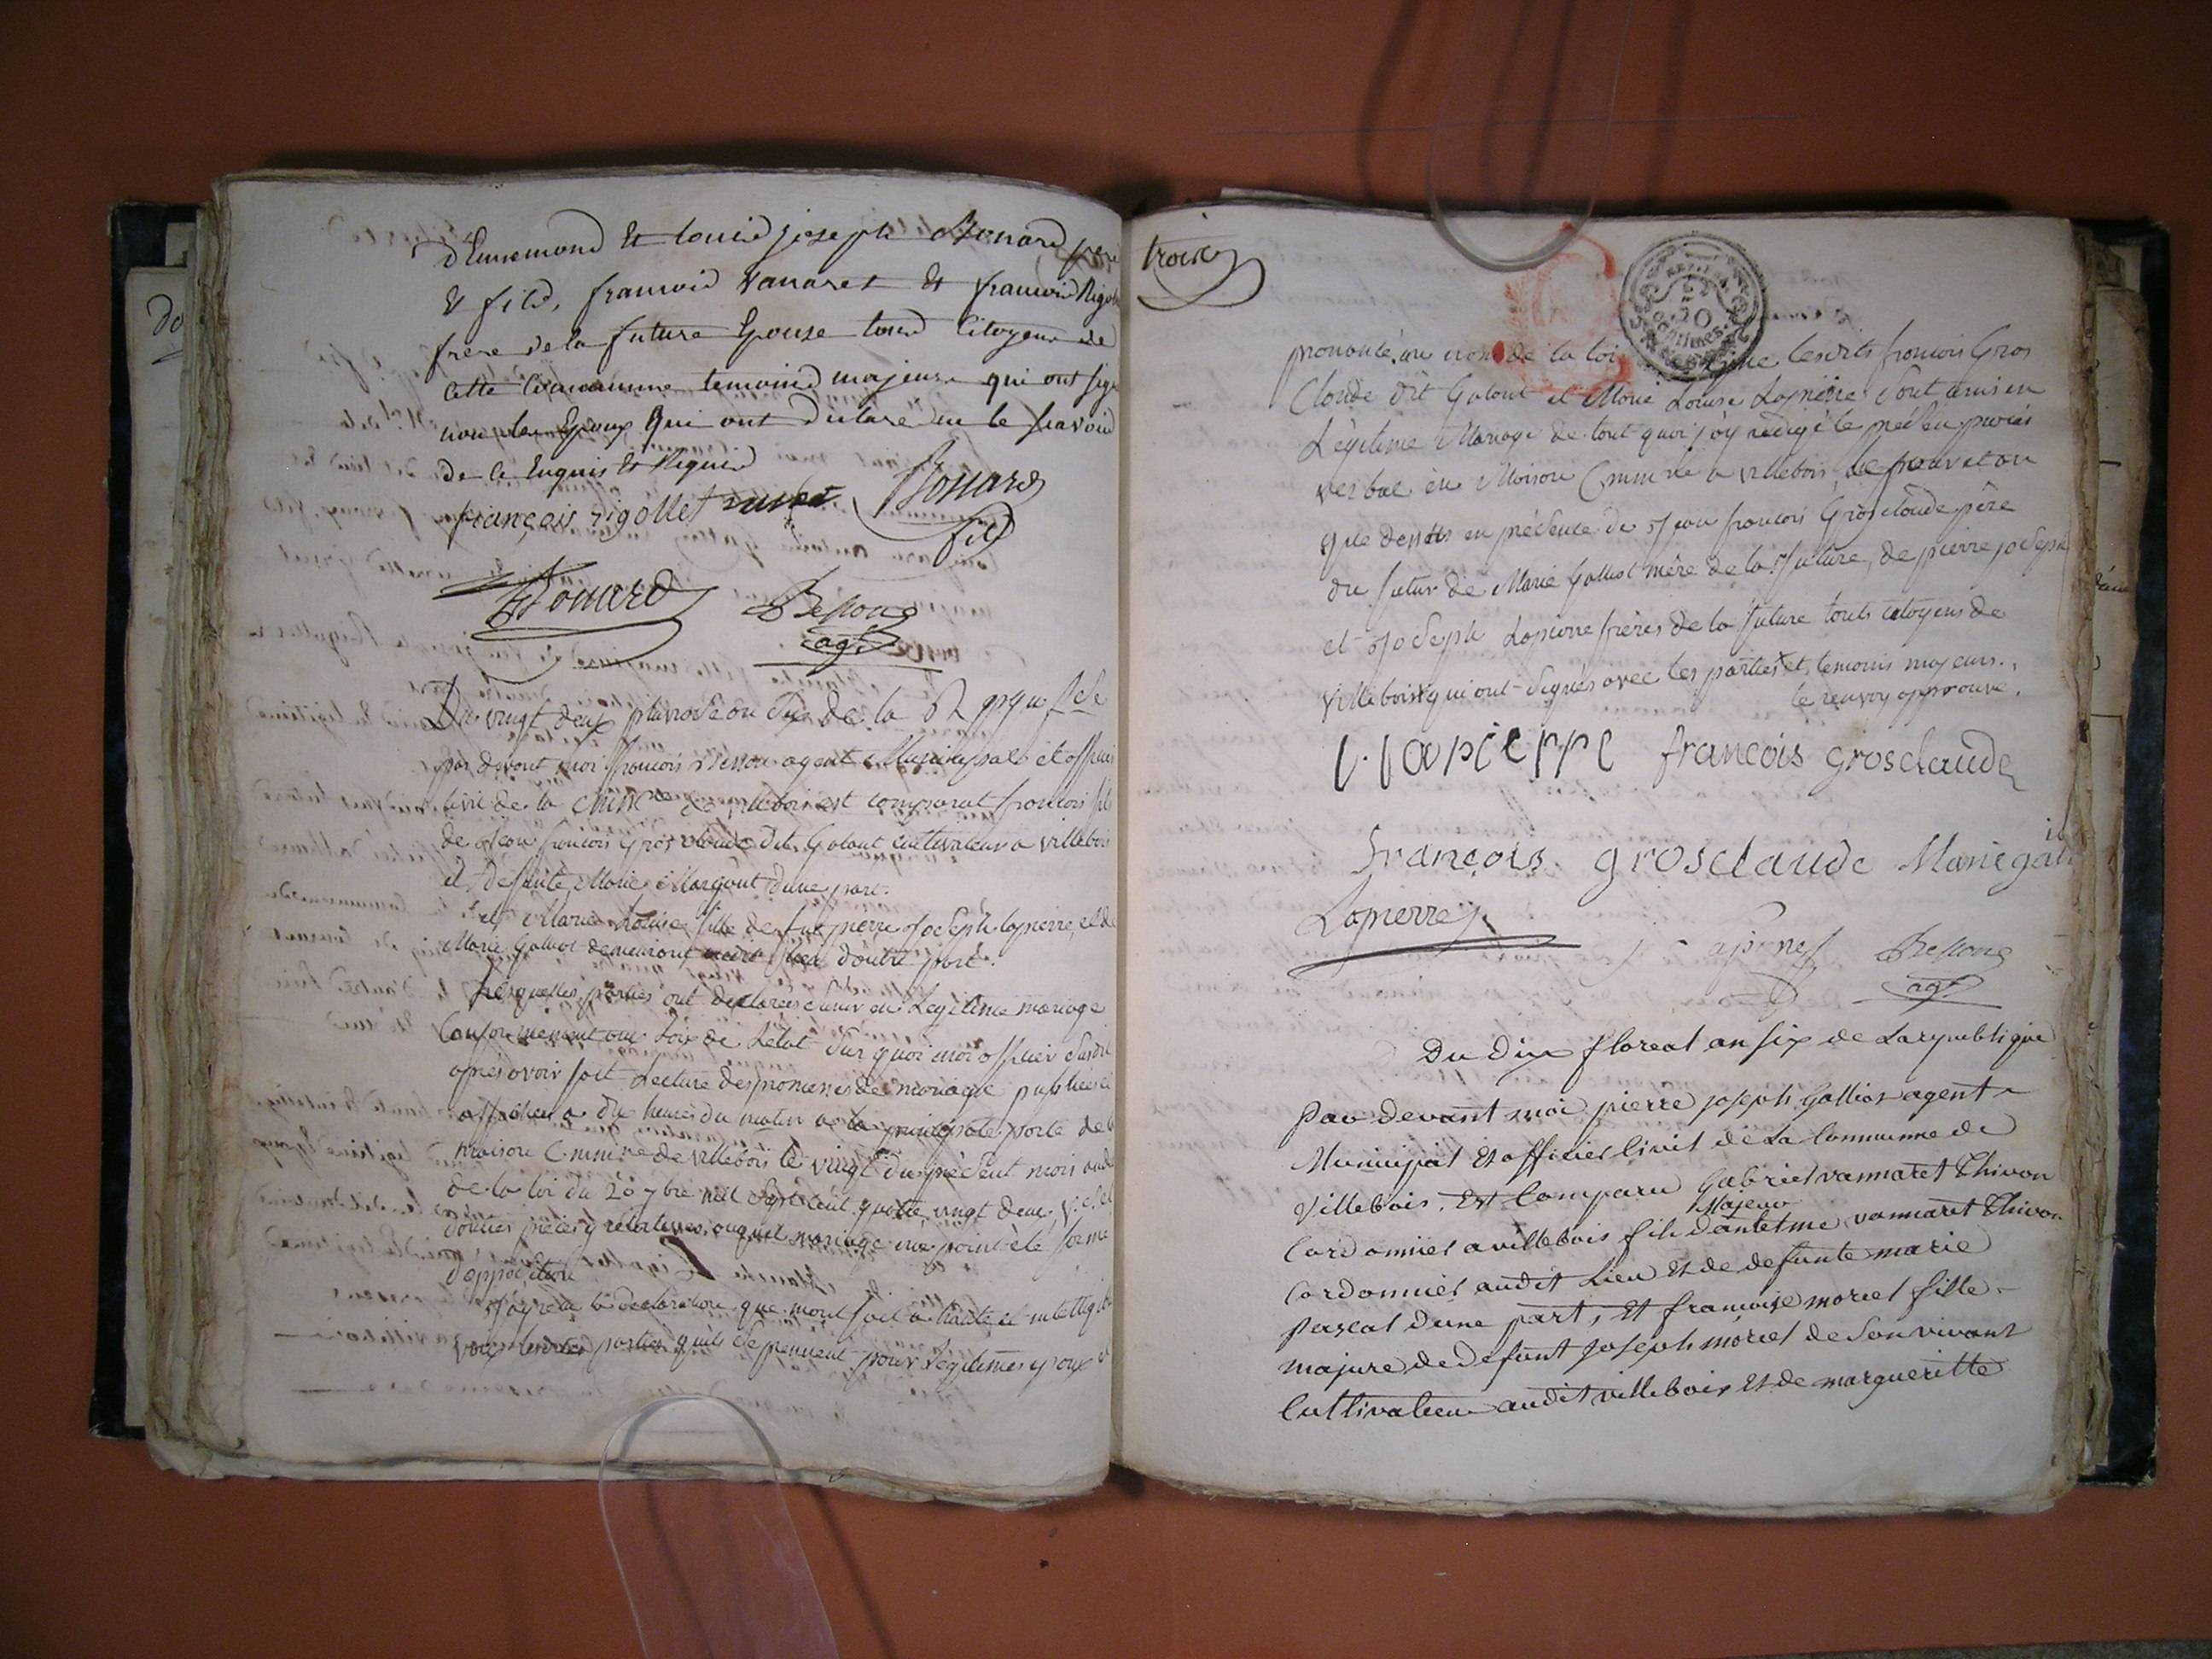 d'Ennemond Et Louis joseph Bonard pere
Et fils, francois Vanaret Et francois Rigol
frere de la future Epouse tous Citoyens de
cette Commune temoins majeurs qui ont sign
non les Epoux qui ont Declare ne le scavoir
de ce Enquis Et Requis
françois rigollet Bonard
fils
Bonard Besson
agt
Du vingt deux pluviose an Six de la Rppque fse
par devant moi francois Besson agent Municipal et officier
civil de la de villebois est comparut francois fils
de Jean francois Gros claude dit Galant cultivateur a villebois
et défunte Marie Margout d'une part.
et Marie Louise fille de feu pierre Joseph lapierre, et de
Marie Galliot demeurant audit lieu d'autre part.
Lesquelles parties ont declarées s'unir en Legitime mariage
Conformement aux Loix de L'etat Sur quoi moi officier susdit
après avoir fait Lecture des promesses de mariage publiées et
affichées a dix heures du matin a la principale porte de la
maison Cmmne de villebois le vingt du présent mois
de la loi du 20 7bre mil Sept Cent quatre vingt deux v. s. et
d'autres pièces y relatives, auquel mariage na point été formé
d'opposition
J'ay reçu la déclaration que mont fait a haute et intelligible
voix lesdites parties quils se prennent pour Legitimes epoux et
trois
20
centimes
prononcé au nom de la loi que lesdits francois Gros
Claude dit Galant et Marie Louise Lapierre sont unis en
Légitime Mariage de tout quoi j'ay redigé le présent procès
verbal en Maison Cmmne a villebois les jour et an
que dessus en présence de Jean francois Grosclaude père
du futur de Marie Galliot mère de la future, de pierre joseph
et Joseph Lapierre frères de la future touts citoyens de
villebois qui ont signés avec les parties et temoins majeurs.
le renvoy approuvé.
l. lapierre francois grosclaude
françois grosclaude Marie gali
Lapierre Besson
agt
Du Dix floreal an six de La republique
Par devant moi pierre joseph Galliot agent
Municipal Et officier Civil de La Commune de
Villebois, Est Comparu Gabriel vannaret Thivon
Majeur
Cordonnier a villebois fils d'antelme vannaret Thivon
Cordonnier audit Lieu Et de defunte marie
pascal D'une part, Et francoise morel fille
majure de Defunt Joseph morel de Son vivant
Cultivateur audit villebois Et de margueritte